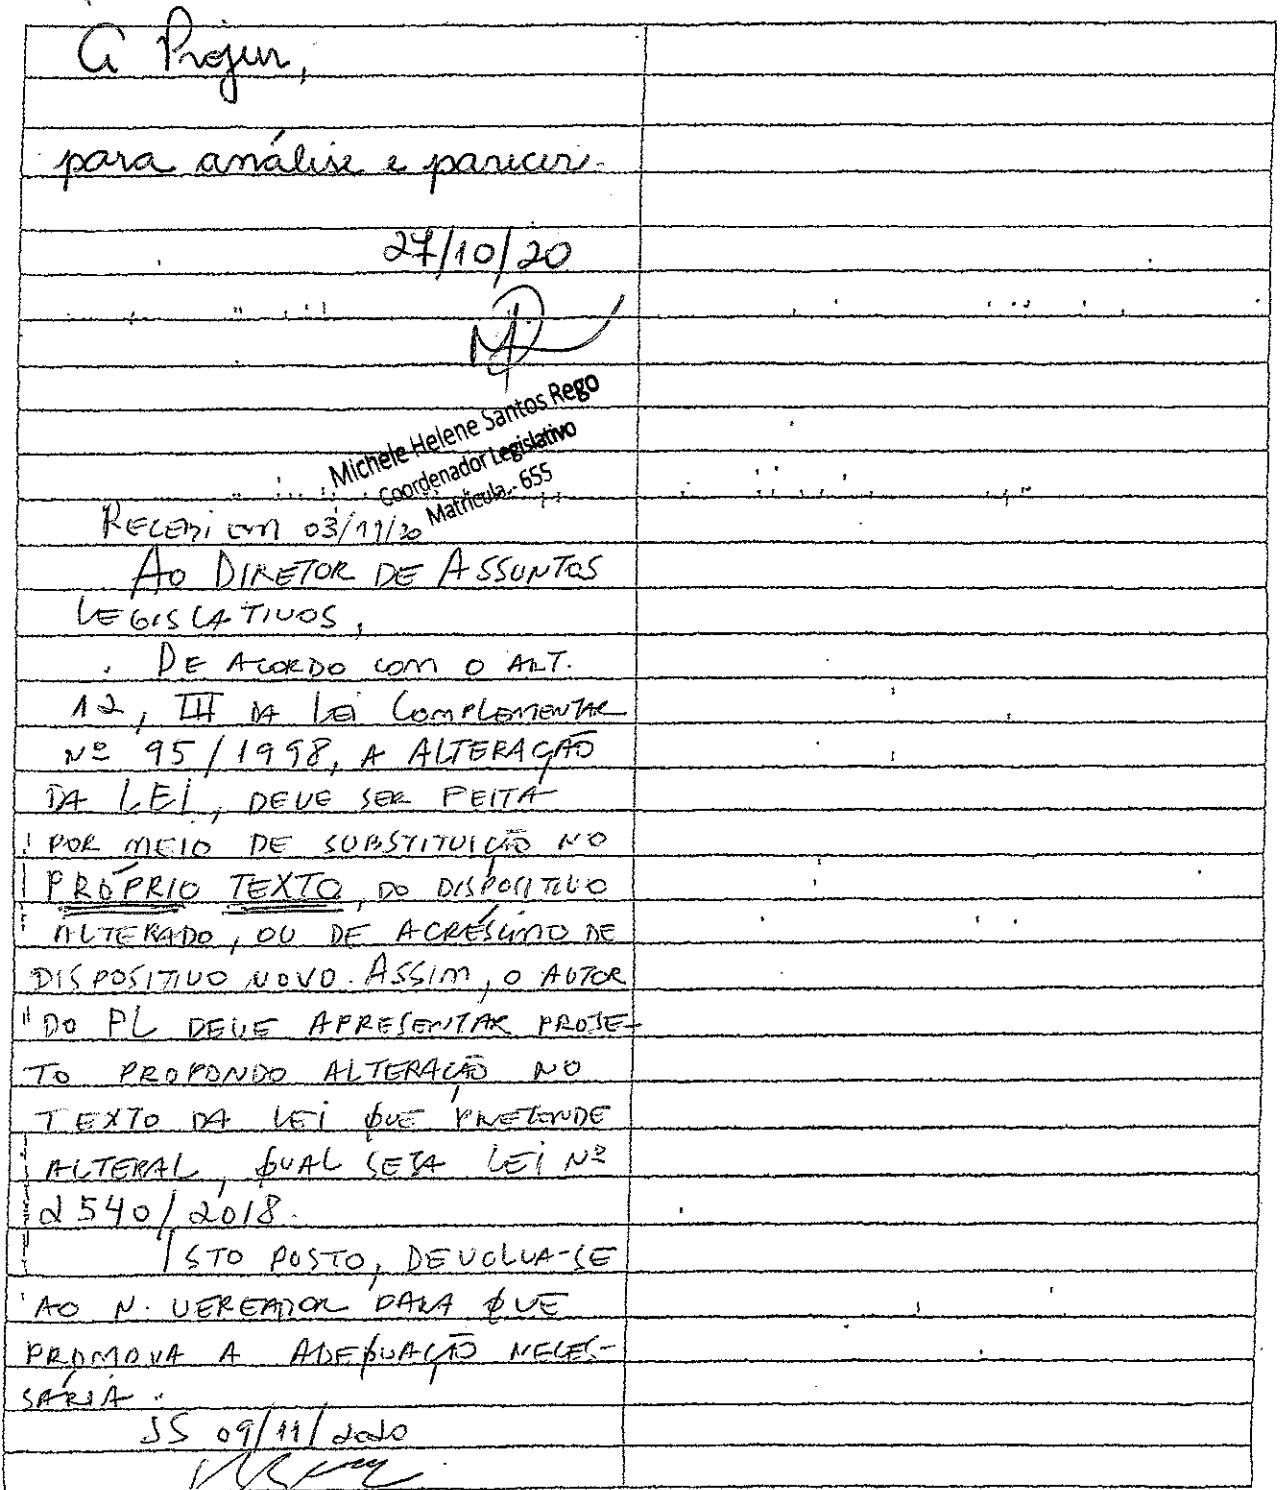 À Projur,
para análise e parecer.
27/10/20
Michele Helene Santos Rego
Coordenador Legislativo
Matrícula.- 655
RECEBI EM 03/11/20
AO DIRETOR DE ASSUNTOS
LEGISLATIVOS,
DE ACORDO COM O ART.
12, III DA LEI COMPLEMENTAR
Nº 95/1998, A ALTERAÇÃO
DA LEI, DEVE SER FEITA
POR MEIO DE SUBSTITUIÇÃO NO
PRÓPRIO TEXTO, DO DISPOSITIVO
ALTERADO, OU DE ACRÉSCIMO DE
DISPOSITIVO NOVO. ASSIM, O AUTOR
DO PL DEVE APRESENTAR PROJE-
TO PROPONDO ALTERAÇÃO NO
TEXTO DA LEI QUE PRETENDE
ALTERAR, QUAL SEJA LEI Nº
2540/2018.
ISTO POSTO, DEVOLVA-SE
AO N. VEREADOR PARA QUE
PROMOVA A ADEQUAÇÃO NECES-
SÁRIA.
JS 09/11/2020